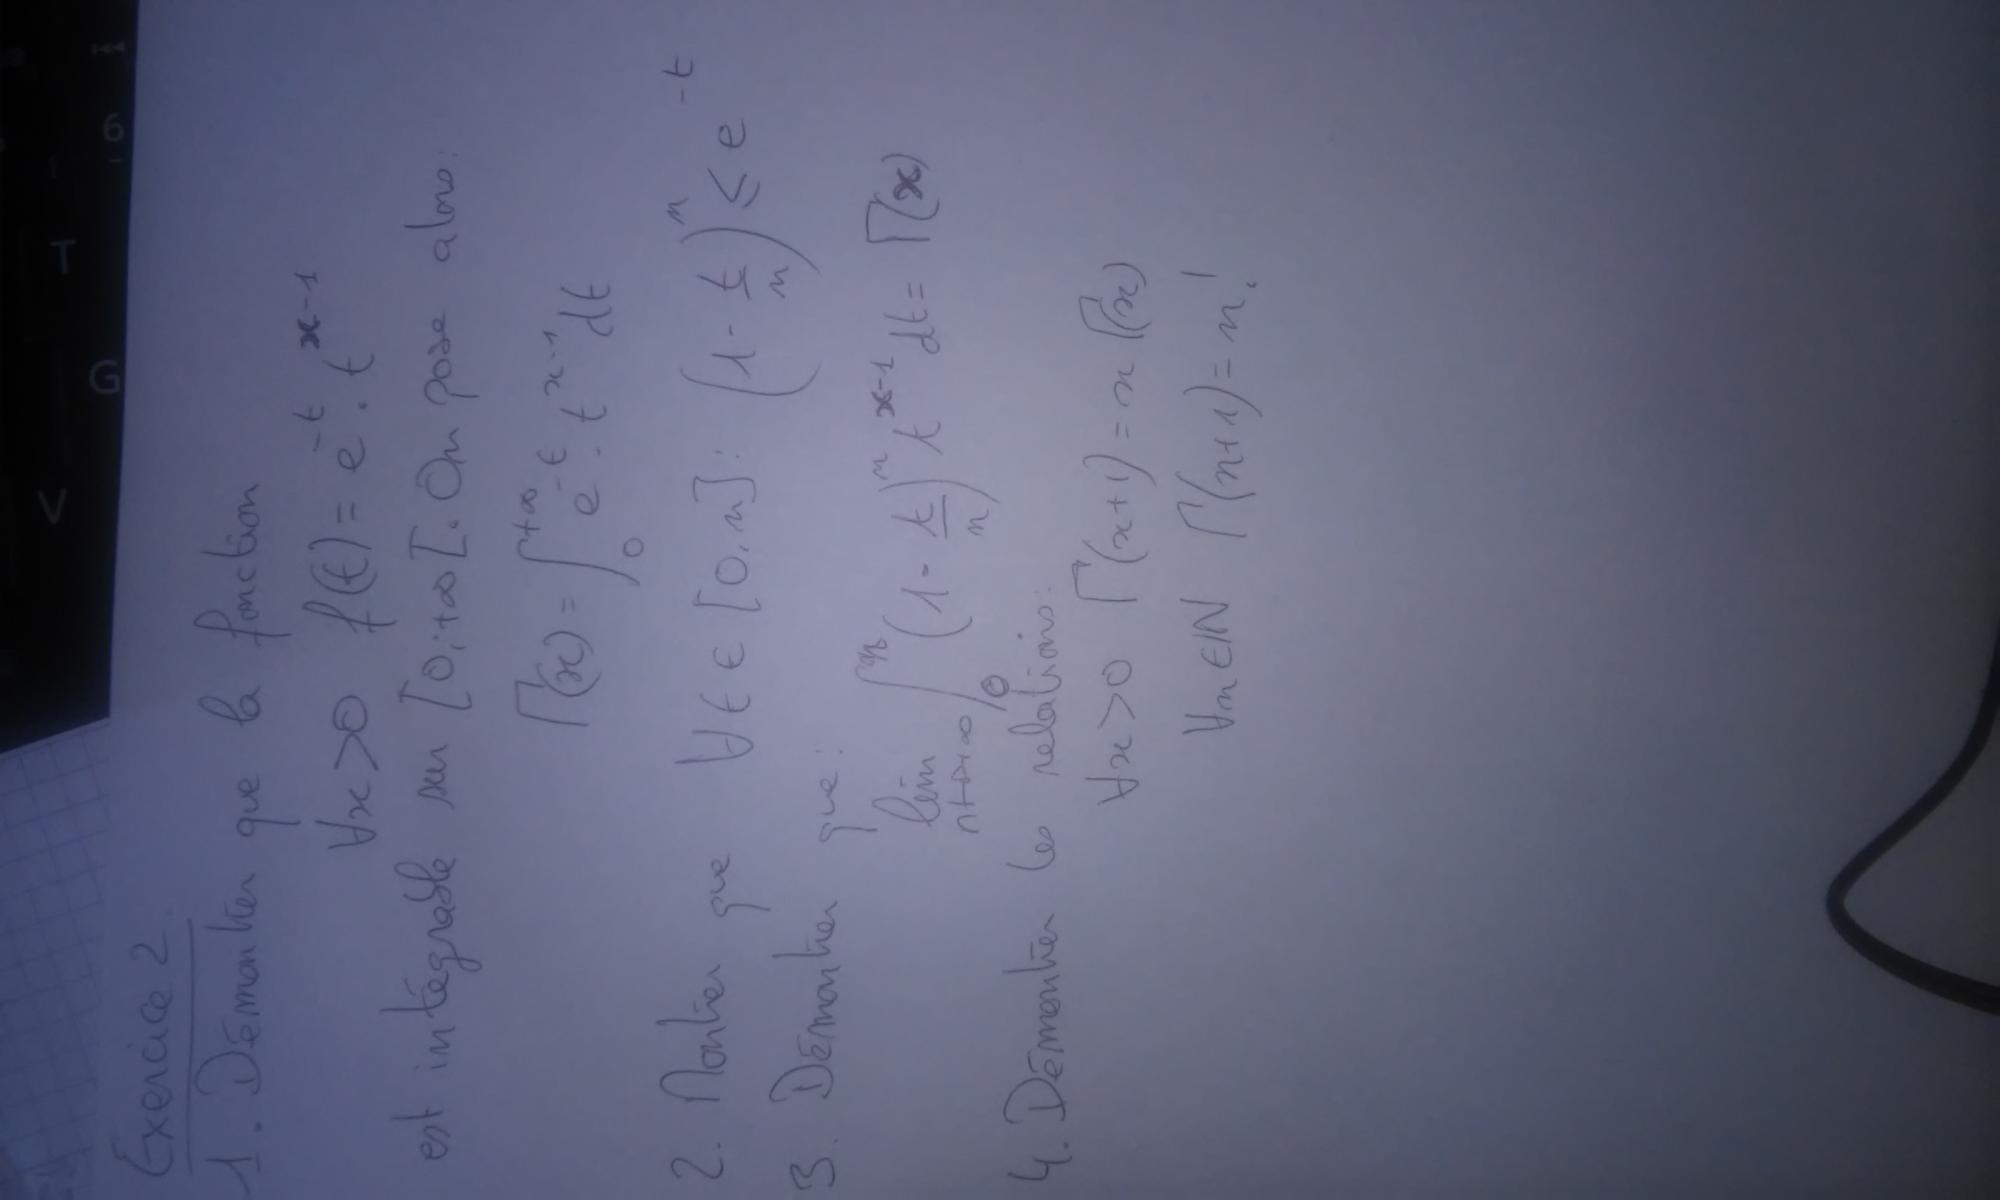 Exercice 2.
1. Démontrer que la fonction
∀x>0 f(t) = e^{-t}. t^{x-1}
est intégrable sur [0;+∞[. On pose alors:
Γ(x) = ∫_0^{+∞} e^{-t}. t^{x-1} dt
2. Montrer que ∀t ∈ [0,n]: (1 - t/n)^n ≤ e^{-t}
3. Démontrer que:
lim_{n→+∞} ∫_0^n (1 - t/n)^n t^{x-1} dt = Γ(x)
4. Démontrer les relations:
∀x>0 Γ(x+1) = x Γ(x)
∀n∈IN Γ(n+1) = n!
6
T
G
V